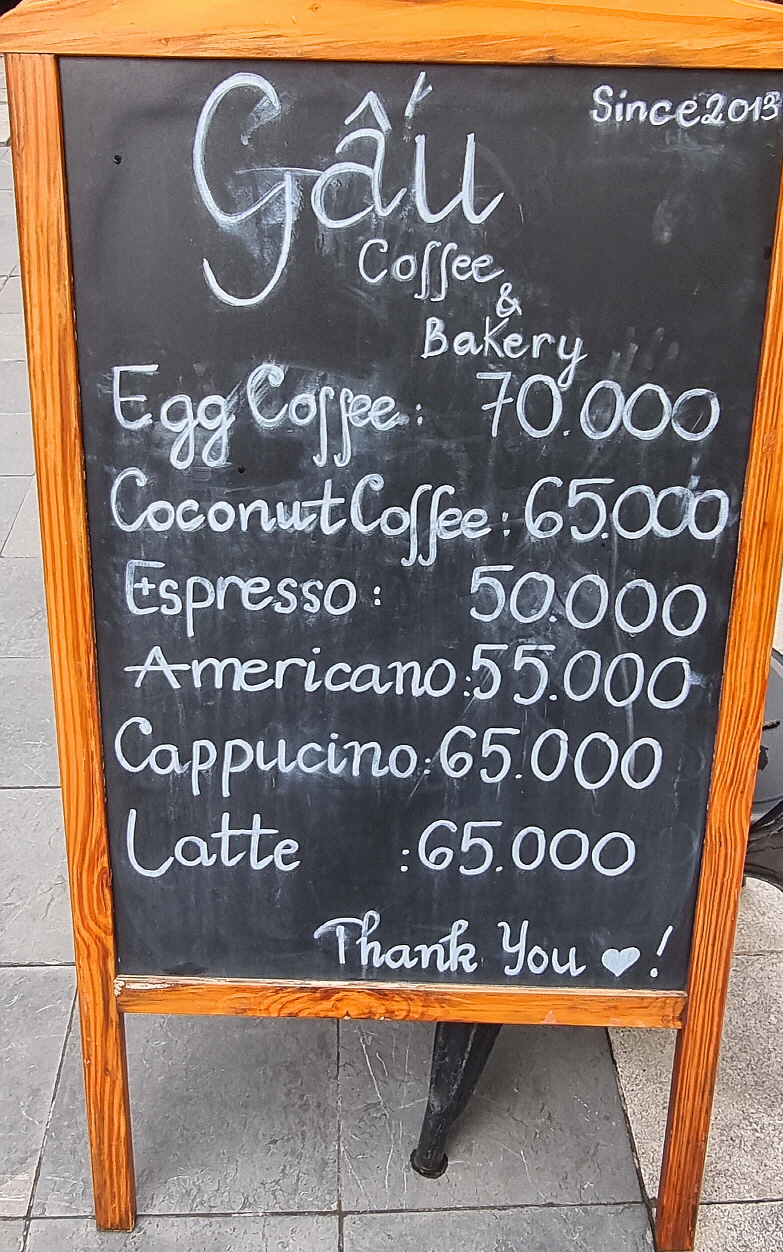 Since 2013
Gấu
Coffee
&
Bakery
Egg Coffee: 70.000
Coconut Coffee: 65.000
Espresso: 50.000
Americano: 55.000
Cappucino: 65.000
Latte : 65.000
Thank You ♥!